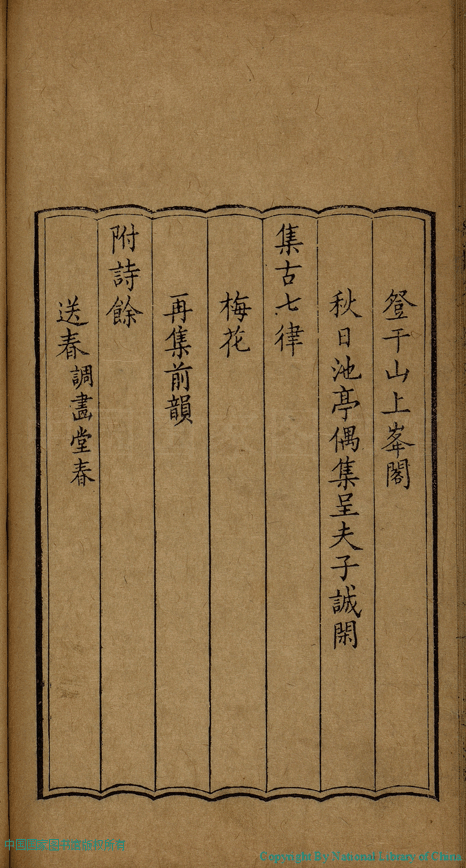 登干山上峯閣
秋日池亭偶集呈夫子誠閑
集古七律
梅花
再集前韻
附詩餘
送春調畫堂春
Copyright By National Library of China